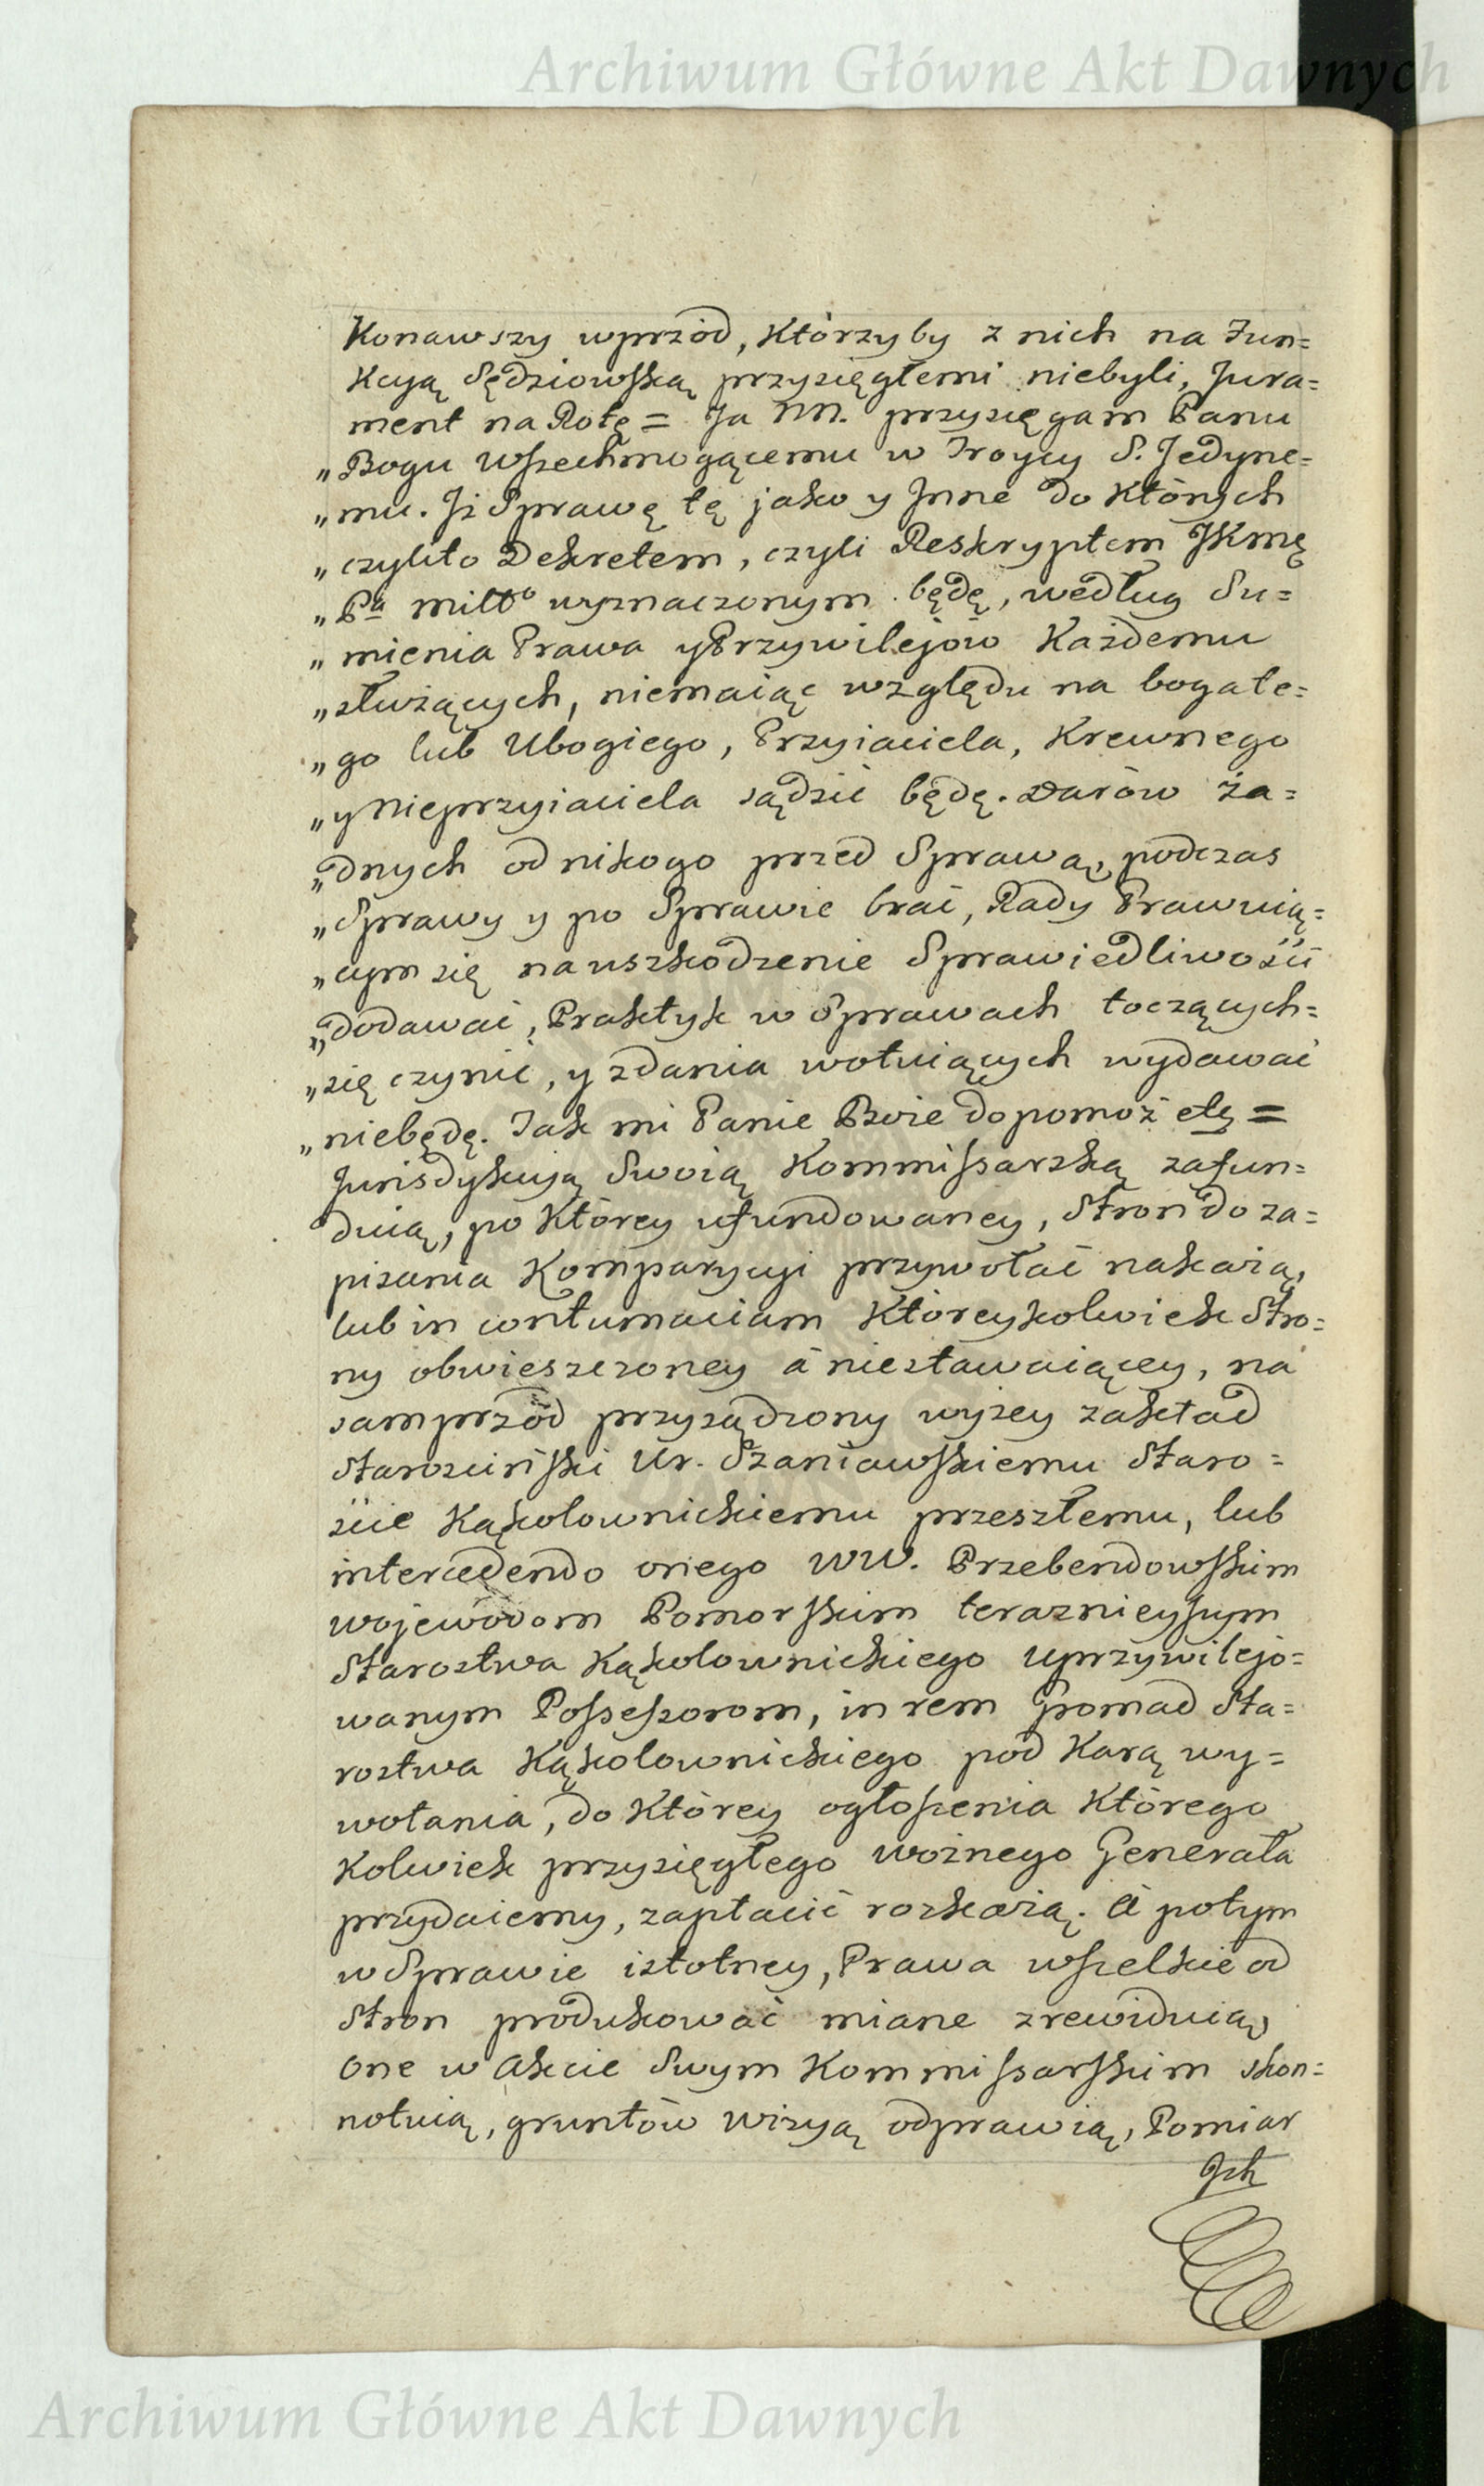 Archiwum Główne Akt Dawnych
Konawszy wprzód, Którzyby z nich na Fun=
Kcyą Sędziowską przysięgłemi niebyli, Jura=
ment na Rotę = Ja NN. przysięgam Panu
„Bogu Wszechmogącemu w Troycy S. Jedyne=
„mu. Jż Sprawę tę jako y Jnne do Których
„czylito Dekretem, czyli Reskryptem JKmę
„Pa miltto wyznaczonym będę, według Su=
„mienia Prawa y Przywilejów Każdemu
„służących, niemaiąc względu na bogate=
„go lub Ubogiego, Przyiaciela, Krewnego
„y Nieprzyiaciela sądzić będę. Darów ża=
„dnych od nikogo przed Sprawą, podczas
„Sprawy y po Sprawie brać, Rady Prawuią=
„cym się na uszkodzenie Sprawiedliwości
„dodawać, Praktyk w Sprawach toczących=
„się czynić, y zdania wotuiących wydawać
„niebędę. Tak mi Panie Boże dopomóż etę =
Jurisdykcyą Swoią Kommissarską zafun=
duią, po Którey ufundowaney, Stron do za=
pisania Komparycyi przywołać nakażą,
lub in contumaciam Któreykolwiek Stro=
ny obwieszczoney á niestawaiącey, na
samprzód przysądzony wyżey zakład
Starościński Ur. Szaniawskiemu Staro=
ście Kąkolownickiemu przeszłemu, lub
intercedendo onego WW. Przebendowskim
Wojewodom Pomorskim teraznieyszym
Starostwa Kąkolownickiego Uprzywilejo=
wanym Possessorom, in rem Gromad Sta=
rostwa Kąkolownickiego pod Karą wy=
wołania, do Którey ogłoszenia Którego
Kolwiek przysięgłego woźnego Generała
przydaiemy, zapłacić rozkażą. á potym
w Sprawie istotney, Prawa wszelkie od
Stron produkować miane zrewiduią,
One w Akcie Swym Kommissarskim skon=
notuią, gruntów Wizyą odprawią, Pomiar
Jch
Archiwum Główne Akt Dawnych